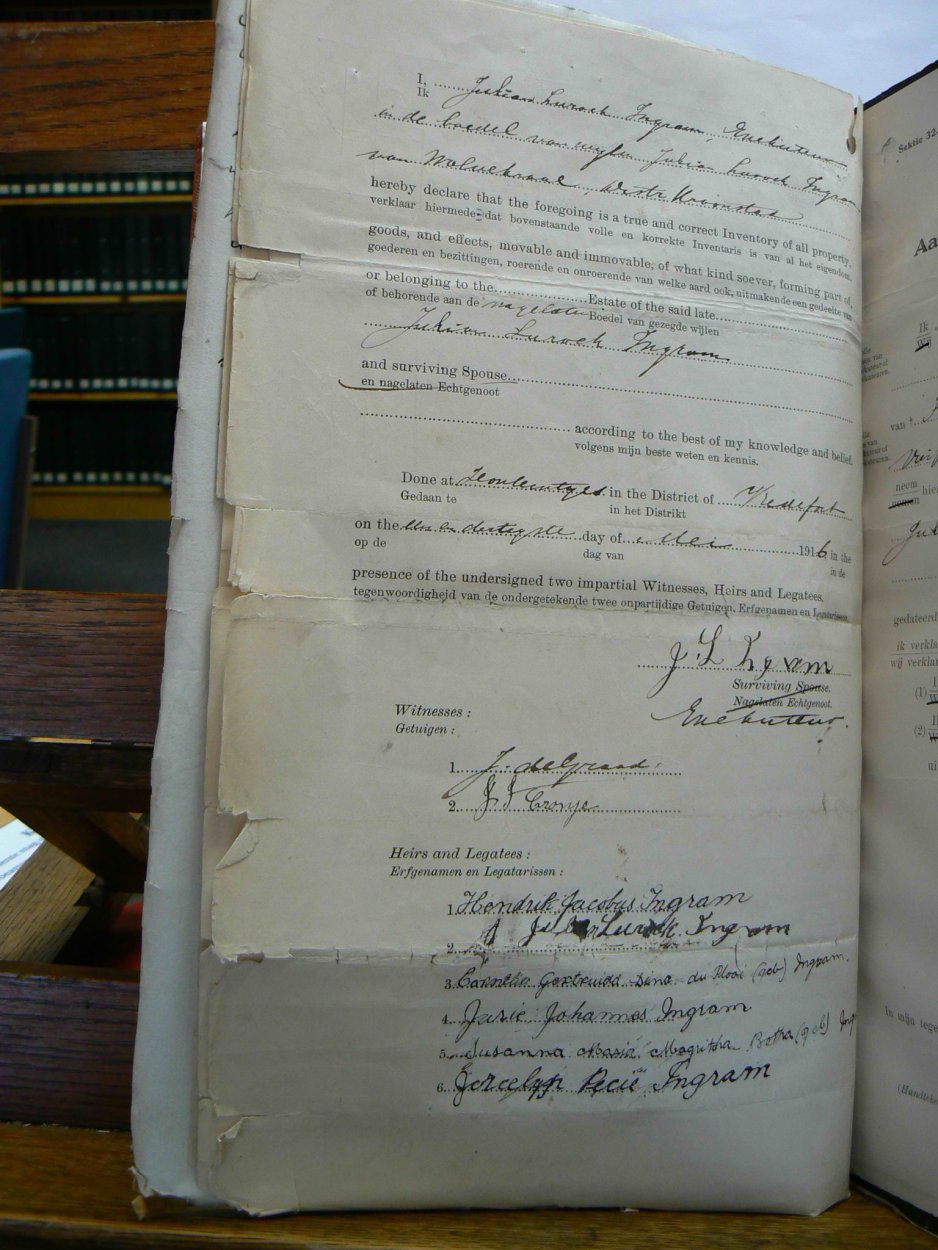 I, Julian Luroch Ingram, Executeur
Ik
in de boedel van wijlen Julian Luroch Ingram
van distr Kroonstad
hereby declare that the foregoing is a true and correct Inventory of all property,
verklaar hiermede dat bovenstaande volle en korrekte Inventaris is van al het eigendom,
goods, and effects, movable and immovable, of what kind soever, forming part of,
goederen en bezittingen, roerende en onroerende van welke aard ook, uitmakende een gedeelte van
or belonging to the Estate of the said late
of behorende aan de nagelaten Boedel van gezegde wijlen
Julian Luroch Ingram
and surviving Spouse
en nagelaten Echtgenoot
according to the best of my knowledge and belief.
volgens mijn beste weten en kennis.
Done at in the District of Vredefort
Gedaan te in het Distrikt
on the een en dertigste day of Mei 1916 in the
op de dag van in de
presence of the undersigned two impartial Witnesses, Heirs and Legatees.
tegenwoordigheid van de ondergetekende twee onpartijdige Getuigen, Erfgenamen en Legatarissen.
J L Ingram
Surviving Spouse.
Nagelaten Echtgenoot.
Executeur.
Witnesses :
Getuigen :
1. J. de
2. J J Cronje
Heirs and Legatees :
Erfgenamen en Legatarissen :
1. Hendrik Jacobus Ingram
2. Ingram
3. Gertruida Dina du Plooi (geb) Ingram.
4. Jurie Johannes Ingram
5. Susanna Maria Magritha Botha (geb)
6. Ingram
Sektie 32
Aa
Ik
Wij
van
neem
nemen
gedateerd
ik verkla
wij verklar
(1)
(2)
ui
In mijn tege
(Handteke